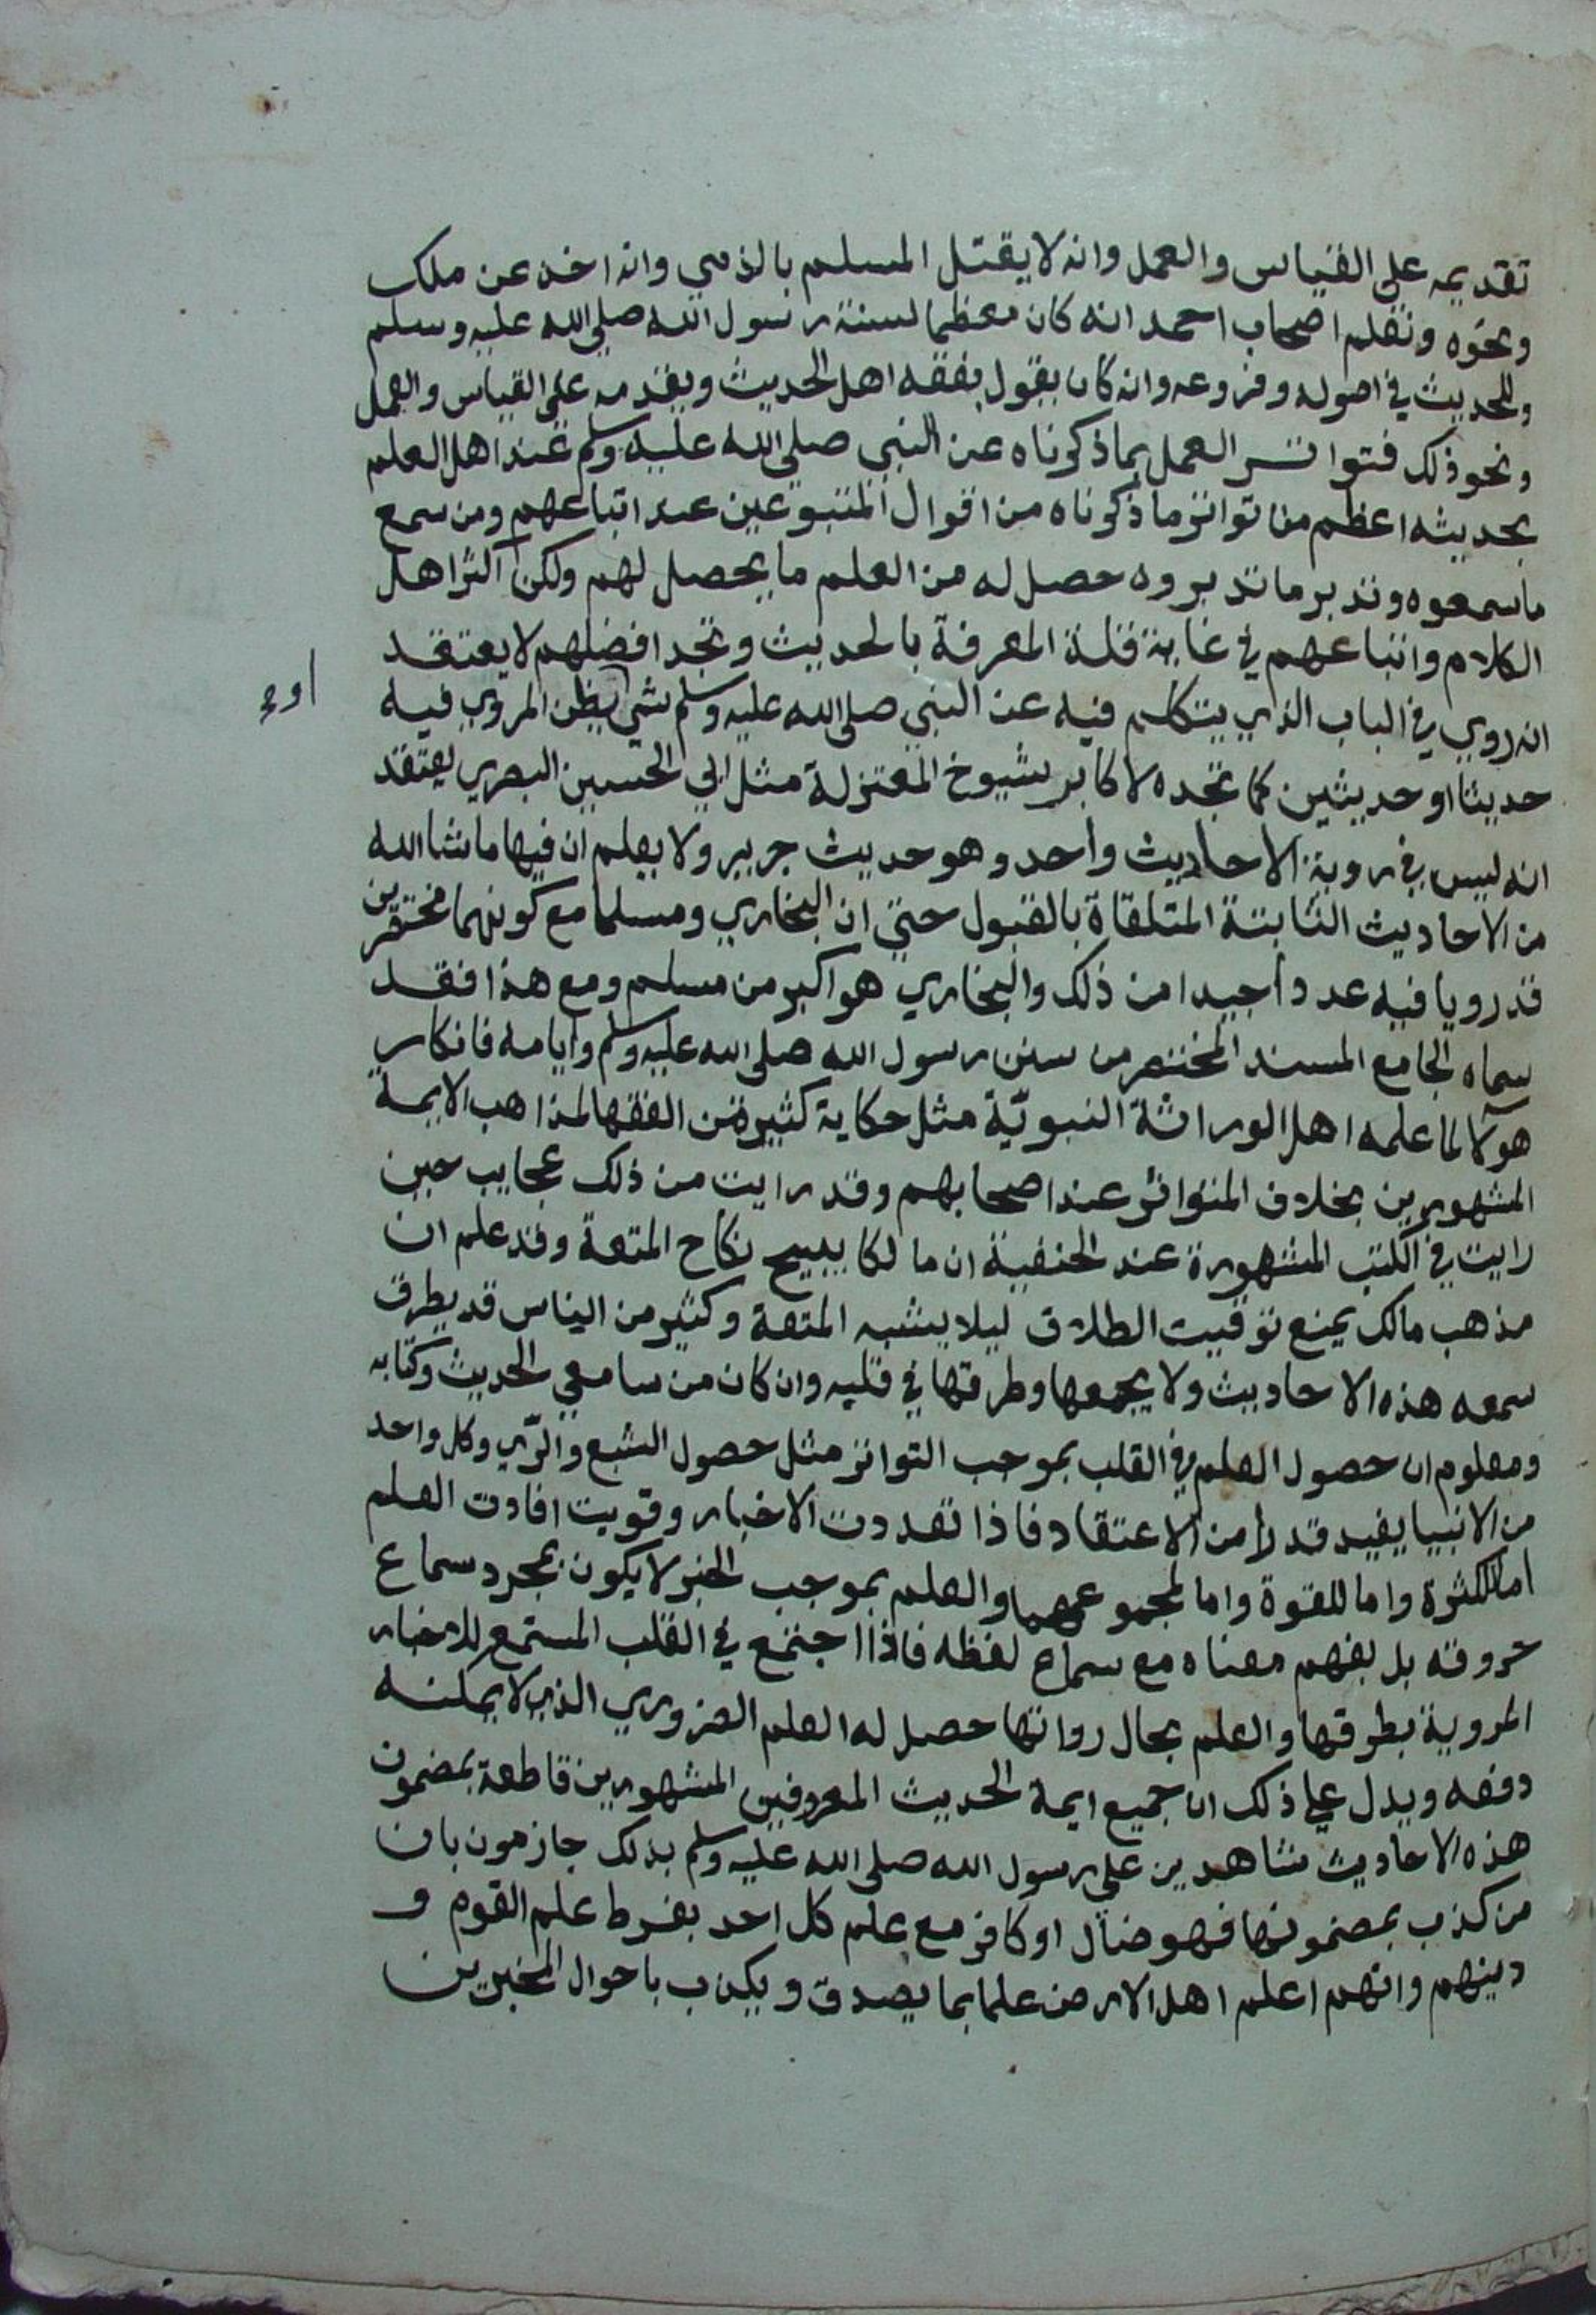 تقديمه على القياس والعمل وانه لا يقتل المسلم بالذمي وانه اخذ عن ملك
ونحوه ونقلهم اصحاب احمد انه كان معظما لسنة رسول الله صلى الله عليه وسلم
وللحديث في اصوله وفروعه وانه كان يقول بفقه اهل الحديث ويقدمه على القياس والعمل
ونحو ذلك فتواتر العمل بما ذكرناه عن النبي صلى الله عليه وسلم عند اهل العلم
بحديثه اعظم من تواتر ما ذكرناه من اقوال المتبوعين عند اتباعهم ومن سمع
ما سمعوه وتدبر ما تدبروه حصل له من العلم ما يحصل لهم ولكن اكثر اهل
الكلام واتباعهم في غاية قلة المعرفة بالحديث وتجد افضلهم لا يعتقد
انه روي في الباب الذي يتكلم فيه عن النبي صلى الله عليه وسلم شي يظن المروي فيه
او
حديثا او حديثين كما تجده لاكابر شيوخ المعتزلة مثل ابي الحسين البصري يعتقد
انه ليس في روية الاحاديث واحد وهو حديث جرير ولا يعلم ان فيها ما شا الله
من الاحاديث الثابتة المتلقاة بالقبول حتى ان البخاري ومسلما مع كونهما مختصرين
قد رويا فيه عددا جيدا من ذلك والبخاري هو اكبر من مسلم ومع هذا فقد
سماه الجامع المسند المختصر من سنن رسول الله صلى الله عليه وسلم وايامه فانكار
هولا لما علمه اهل الوراثة النبويّة مثل حكاية كثيرة من الفقها لمذاهب الايمة
المشهورين بخلاف المتواتر عند اصحابهم وقد رايت من ذلك عجايب حين
رايت في الكتب المشهورة عند الحنفية ان مالكا يبيح نكاح المتعة وقد علم ان
مذهب مالك يمنع توقيت الطلاق ليلا يشبه المتعة وكثير من الناس قد يطرق
سمعه هذه الاحاديث ولا يجمعها وطرقها في قلبه وان كان من سامعي الحديث وكتابه
ومعلوم ان حصول العلم في القلب بموجب التواتر مثل حصول الشبع والرّي وكل واحد
من الانبيا يفيد قدرا من الاعتقاد فاذا تعددت الاخبار وقويت افادت العلم
اما للكثرة واما للقوة واما لمجموعهما والعلم بموجب الخبر لا يكون بمجرد سماع
حروفه بل بفهم معناه مع سماع لفظه فاذا اجتمع في القلب المستمع للاخبار
المروية بطرقها والعلم بحال رواتها حصل له العلم الضروري الذي لا يمكنه
دفعه ويدل على ذلك ان جميع ايمة الحديث المعروفين المشهورين قاطعة بمضمون
هذه الاحاديث شاهدين على رسول الله صلى الله عليه وسلم بذلك جازمون بان
من كذب بمضمونها فهو ضال او كافر مع علم كل احد بفرط علم القوم و
دينهم وانهم اعلم اهل الارض علما بما يصدق ويكذب باحوال المخبرين